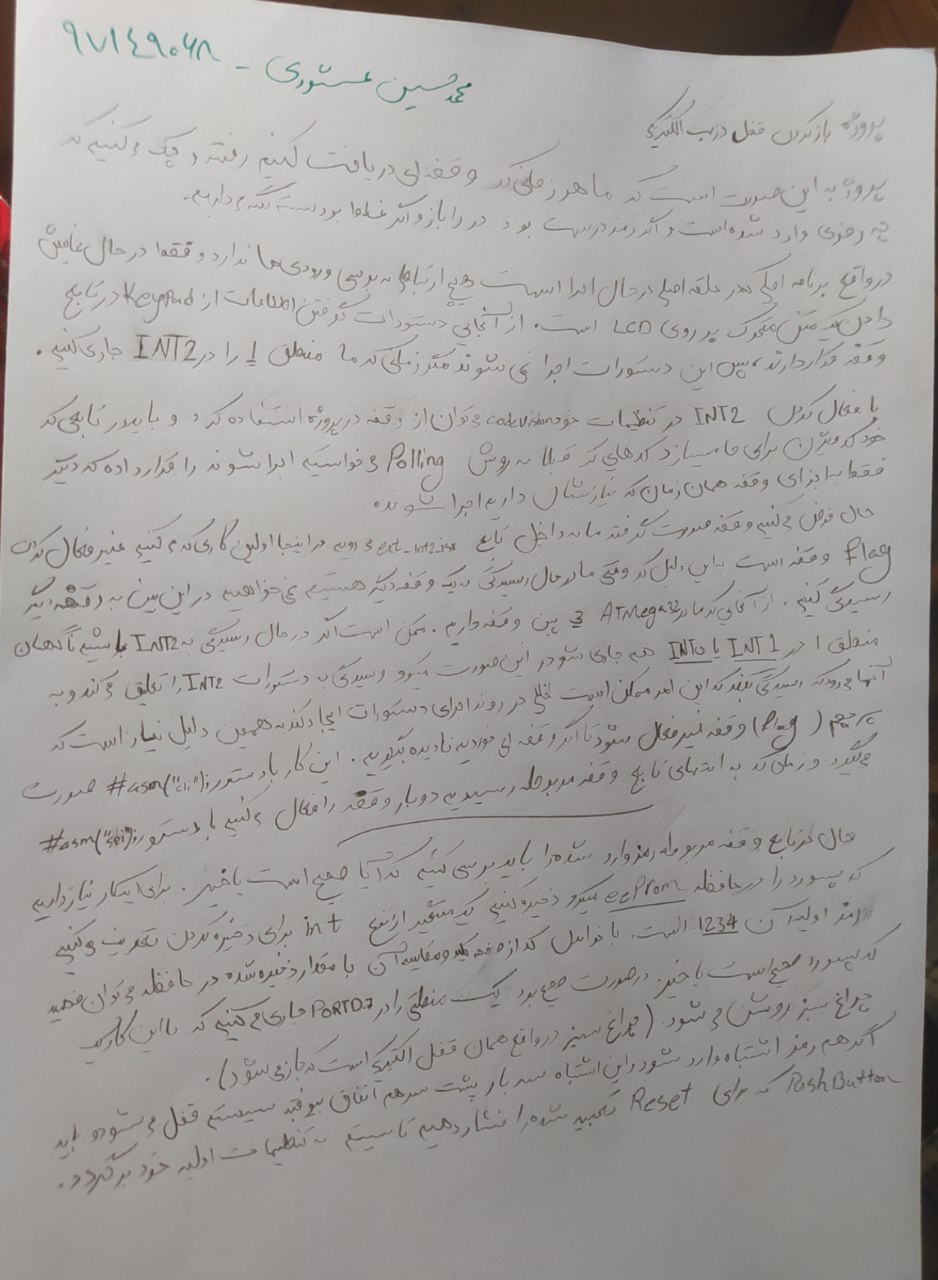 محمد حسین عستوری - ۹۷۱۴۹۰۶۸
پروژه باز کردن قفل درب الکتریکی
پروژه به این صورت است که ما هر زمانی که وقفه ای دریافت کنیم رفته و چک می کنیم که
چه رمزی وارد شده است و اگر رمز درست بود در را باز و اگر غلط بود بسته نگه می داریم.
در واقع برنامه اصلی که در حلقه اصلی در حال اجرا است هیچ ارتباطی به بررسی ورودی ها ندارد و فقط در حال نمایش
دادن یک متن متحرک بر روی LCD است. از آنجایی دستورات گرفتن اطلاعات از Keypad در تابع
وقفه قرار دارند، پس این دستورات اجرا نمی شوند مگر زمانی که ما منطق 1 را در INT2 جاری کنیم.
با فعال کردن INT2 در تنظیمات خود codevision می توان از وقفه در پروژه استفاده کرد و باید در تابعی که
خود کدویژن برای ما میسازد کدهایی که قبلا به روش Polling می خواستیم اجرا شوند را قرار داده که دیگر
فقط به اجزای وقفه همان زمان که نیازشان داریم اجرا شوند.
حال فرض می کنیم وقفه صورت گرفته ما به داخل تابع ext_int2_isr می رویم در اینجا اولین کاری که می کنیم غیر فعال کردن
Flag وقفه است به این دلیل که وقتی ما در حال رسیدگی به یک وقفه دیگر هستیم نمی خواهیم در این بین به وقفه دیگر
رسیدگی کنیم. از آنجایی که ما در ATMega32 3 پین وقفه داریم. ممکن است اگر در حال رسیدگی به INT2 باشیم ناگهان
منطق 1 در INT1 یا INT0 هم جاری شود در این صورت میکرو رسیدگی به دستورات INT2 را تعلیق می کند و به
آنها می رود که رسیدگی بکند که این امر ممکن است خللی در روند اجرای دستورات ایجاد کند به همین دلیل نیاز است که
پرچم (Flag) وقفه غیر فعال شود تا اگر وقفه ای خوردیم نادیده بگیریم. این کار با دستور #asm("cli"); صورت
میگیرد و زمانی که به انتهای تابع وقفه مربوطه رسیدیم دوباره وقفه را فعال می کنیم با دستور #asm("sei");
حال در تابع وقفه مربوطه رمز وارد شده را باید بررسی کنیم که آیا صحیح است یا خیر. برای اینکار نیاز داریم
که پسورد را در حافظه eeprom میکرو ذخیره کنیم که متغیر از نوع int برای ذخیره کردن تعریف می کنیم
رمز اولیه آن 1234 است. با خواندن کد از صفحه کلید و مقایسه آن با مقدار ذخیره شده در حافظه می توان فهمید
که پسورد صحیح است یا خیر. در صورت صحیح بود یک منطقی را در PORTD.7 جاری می کنیم که با این کار یک
چراغ سبز روشن می شود. (چراغ سبز در واقع همان قفل الکتریکی است که باز می شود).
اگر هم رمز اشتباه وارد شود و این اشتباه سه بار پشت سر هم اتفاق بیوفتد سیستم قفل می شود و باید
PushButton که برای Reset تعبیه شده را فشار دهیم تا سیستم به تنظیمات اولیه خود برگردد.